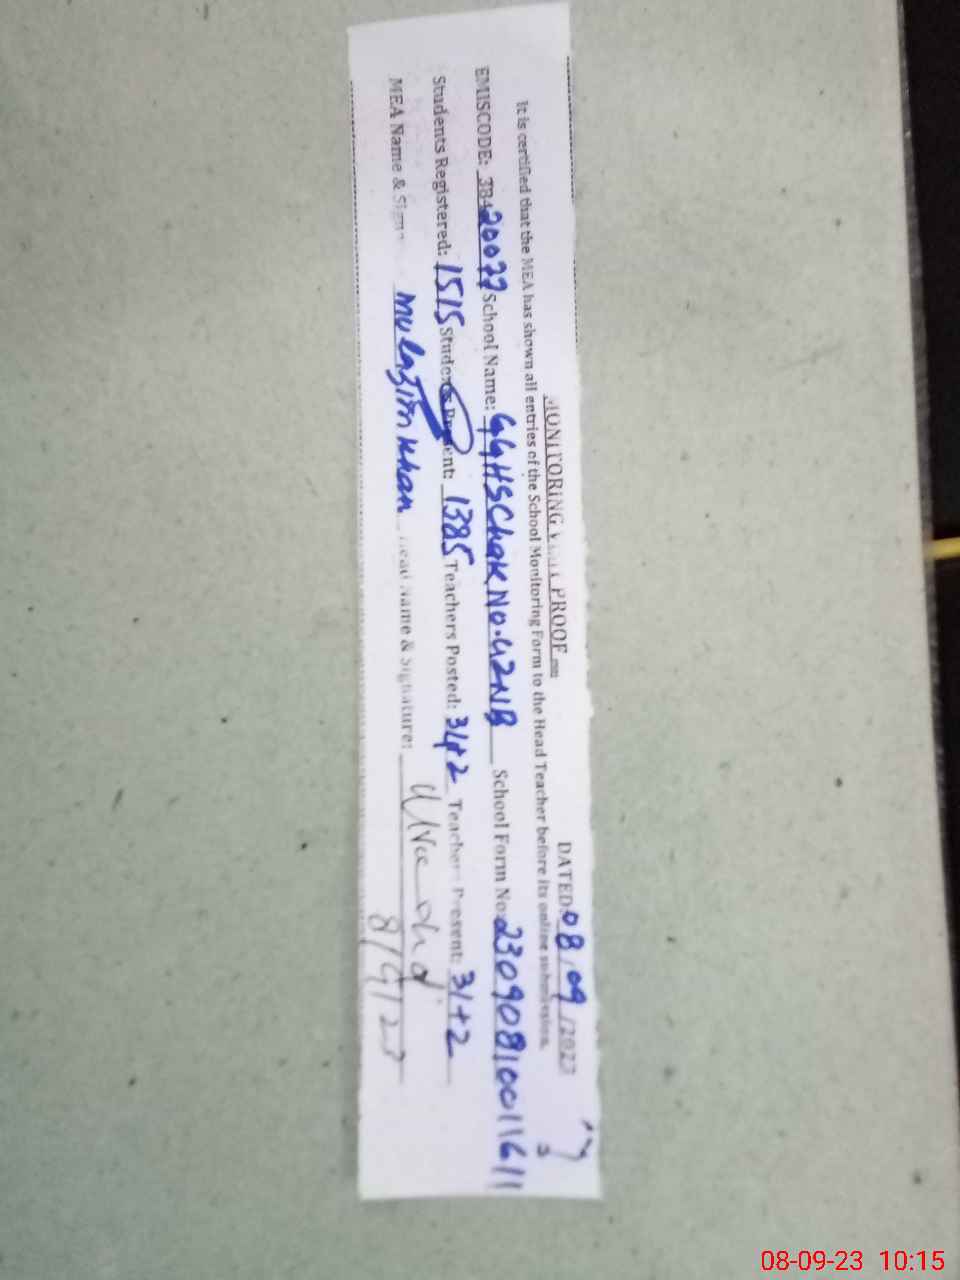 MONITORING VISIT PROOF
DATED: 08/09/2023
It is certified that the MEA has shown all entries of the School Monitoring Form to the Head Teacher before its online submission.
EMISCODE: 38420077 School Name: GGHS Chak No. 42 NB School Form No: 23090810011611
Students Registered: 1515 Students Present: 1385 Teachers Posted: 34+2 Teachers Present: 31+2
MEA Name & Sign: Mulazim Khan Head Name & Signature:
8/9/23
08-09-23 10:15